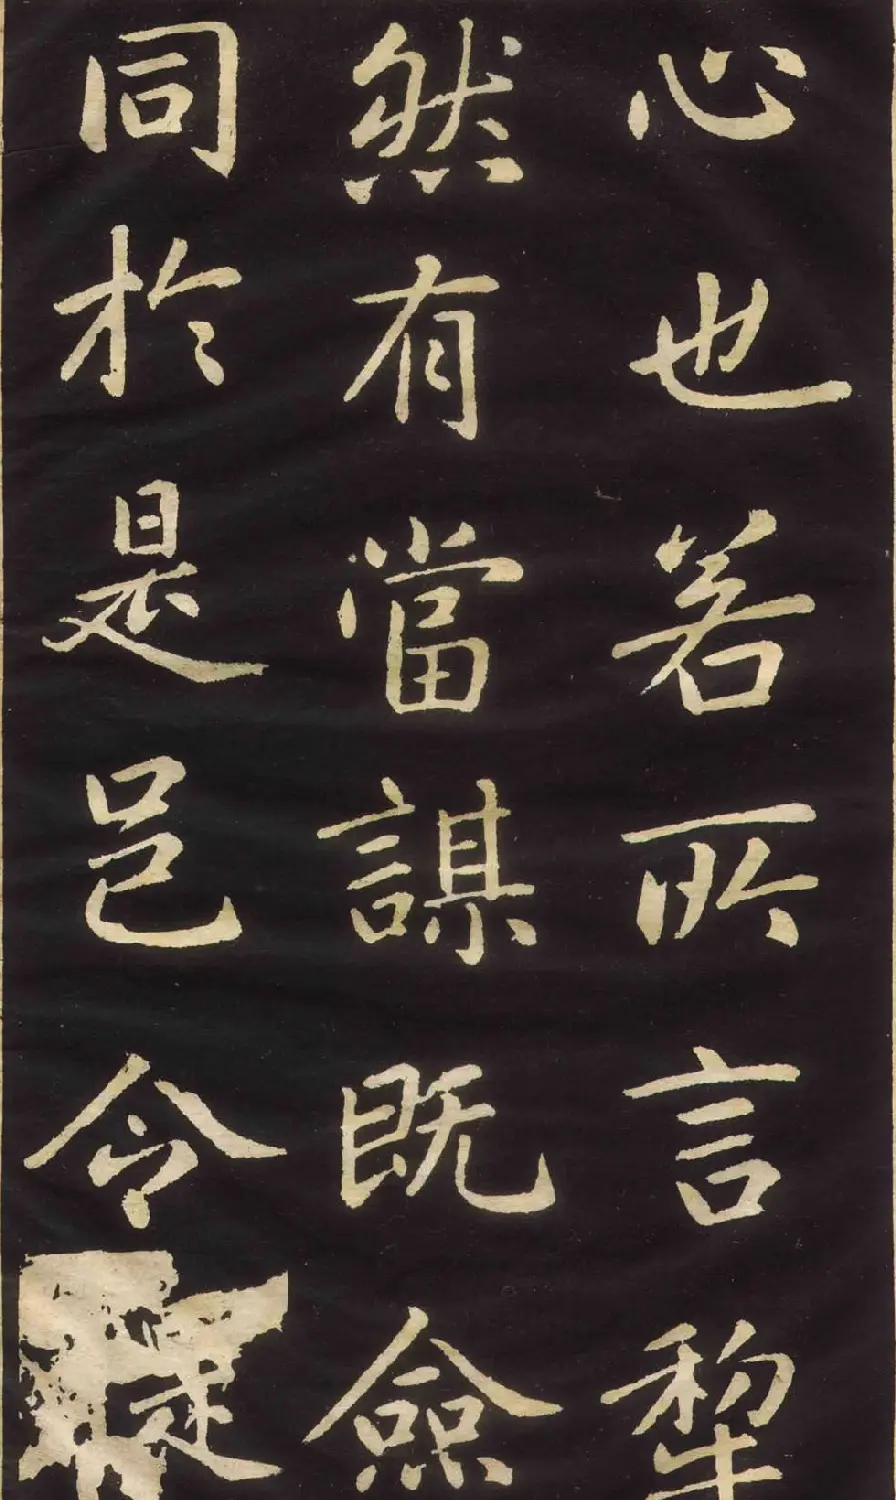 心也若所言犁
然有當謀既僉
同於是邑令